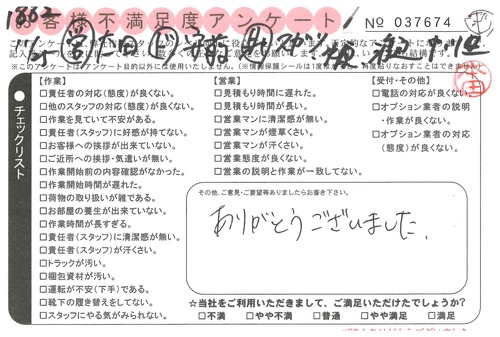 1882
お客様不満足度アンケート
No 037674
※このアンケートはアンケート目的以外には使用いたしません。(※情報保護シールは1度
チェックリスト
【作業】
□責任者の対応(態度)が良くない。
□他のスタッフの対応(態度)が良くない。
□作業を見ていて不安がある。
□責任者(スタッフ)に好感が持てない。
□お客様への挨拶が出来ていない。
□ご近所への挨拶・気遣いが無い。
□作業開始前の内容確認がなかった。
□作業開始時間が遅れた。
□荷物の取り扱いが雑である。
□お部屋の養生が出来ていない。
□作業時間が長すぎる。
□責任者(スタッフ)に清潔感が無い。
□責任者(スタッフ)が汗くさい。
□トラックが汚い。
□梱包資材が汚い。
□運転が不安(下手)である。
□靴下の履き替えをしてない。
□スタッフにやる気がみられない。
【営業】
□見積もり時間に遅れた。
□見積もり時間が長い。
□営業マンに清潔感が無い。
□営業マンが煙草くさい。
□営業マンが汗くさい。
□営業態度が良くない。
□営業の説明と作業が一致してない。
【受付・その他】
□電話の対応が良くない。
□オプション業者の説明
・作業が良くない。
□オプション業者の対応
(態度)が良くない。
その他、ご意見・ご要望等ありましたらお書き下さい。
ありがとうございました。
☆当社をご利用いただきまして、ご満足いただけたでしょうか?
□不満 □やや不満 □普通 □やや満足 □満足